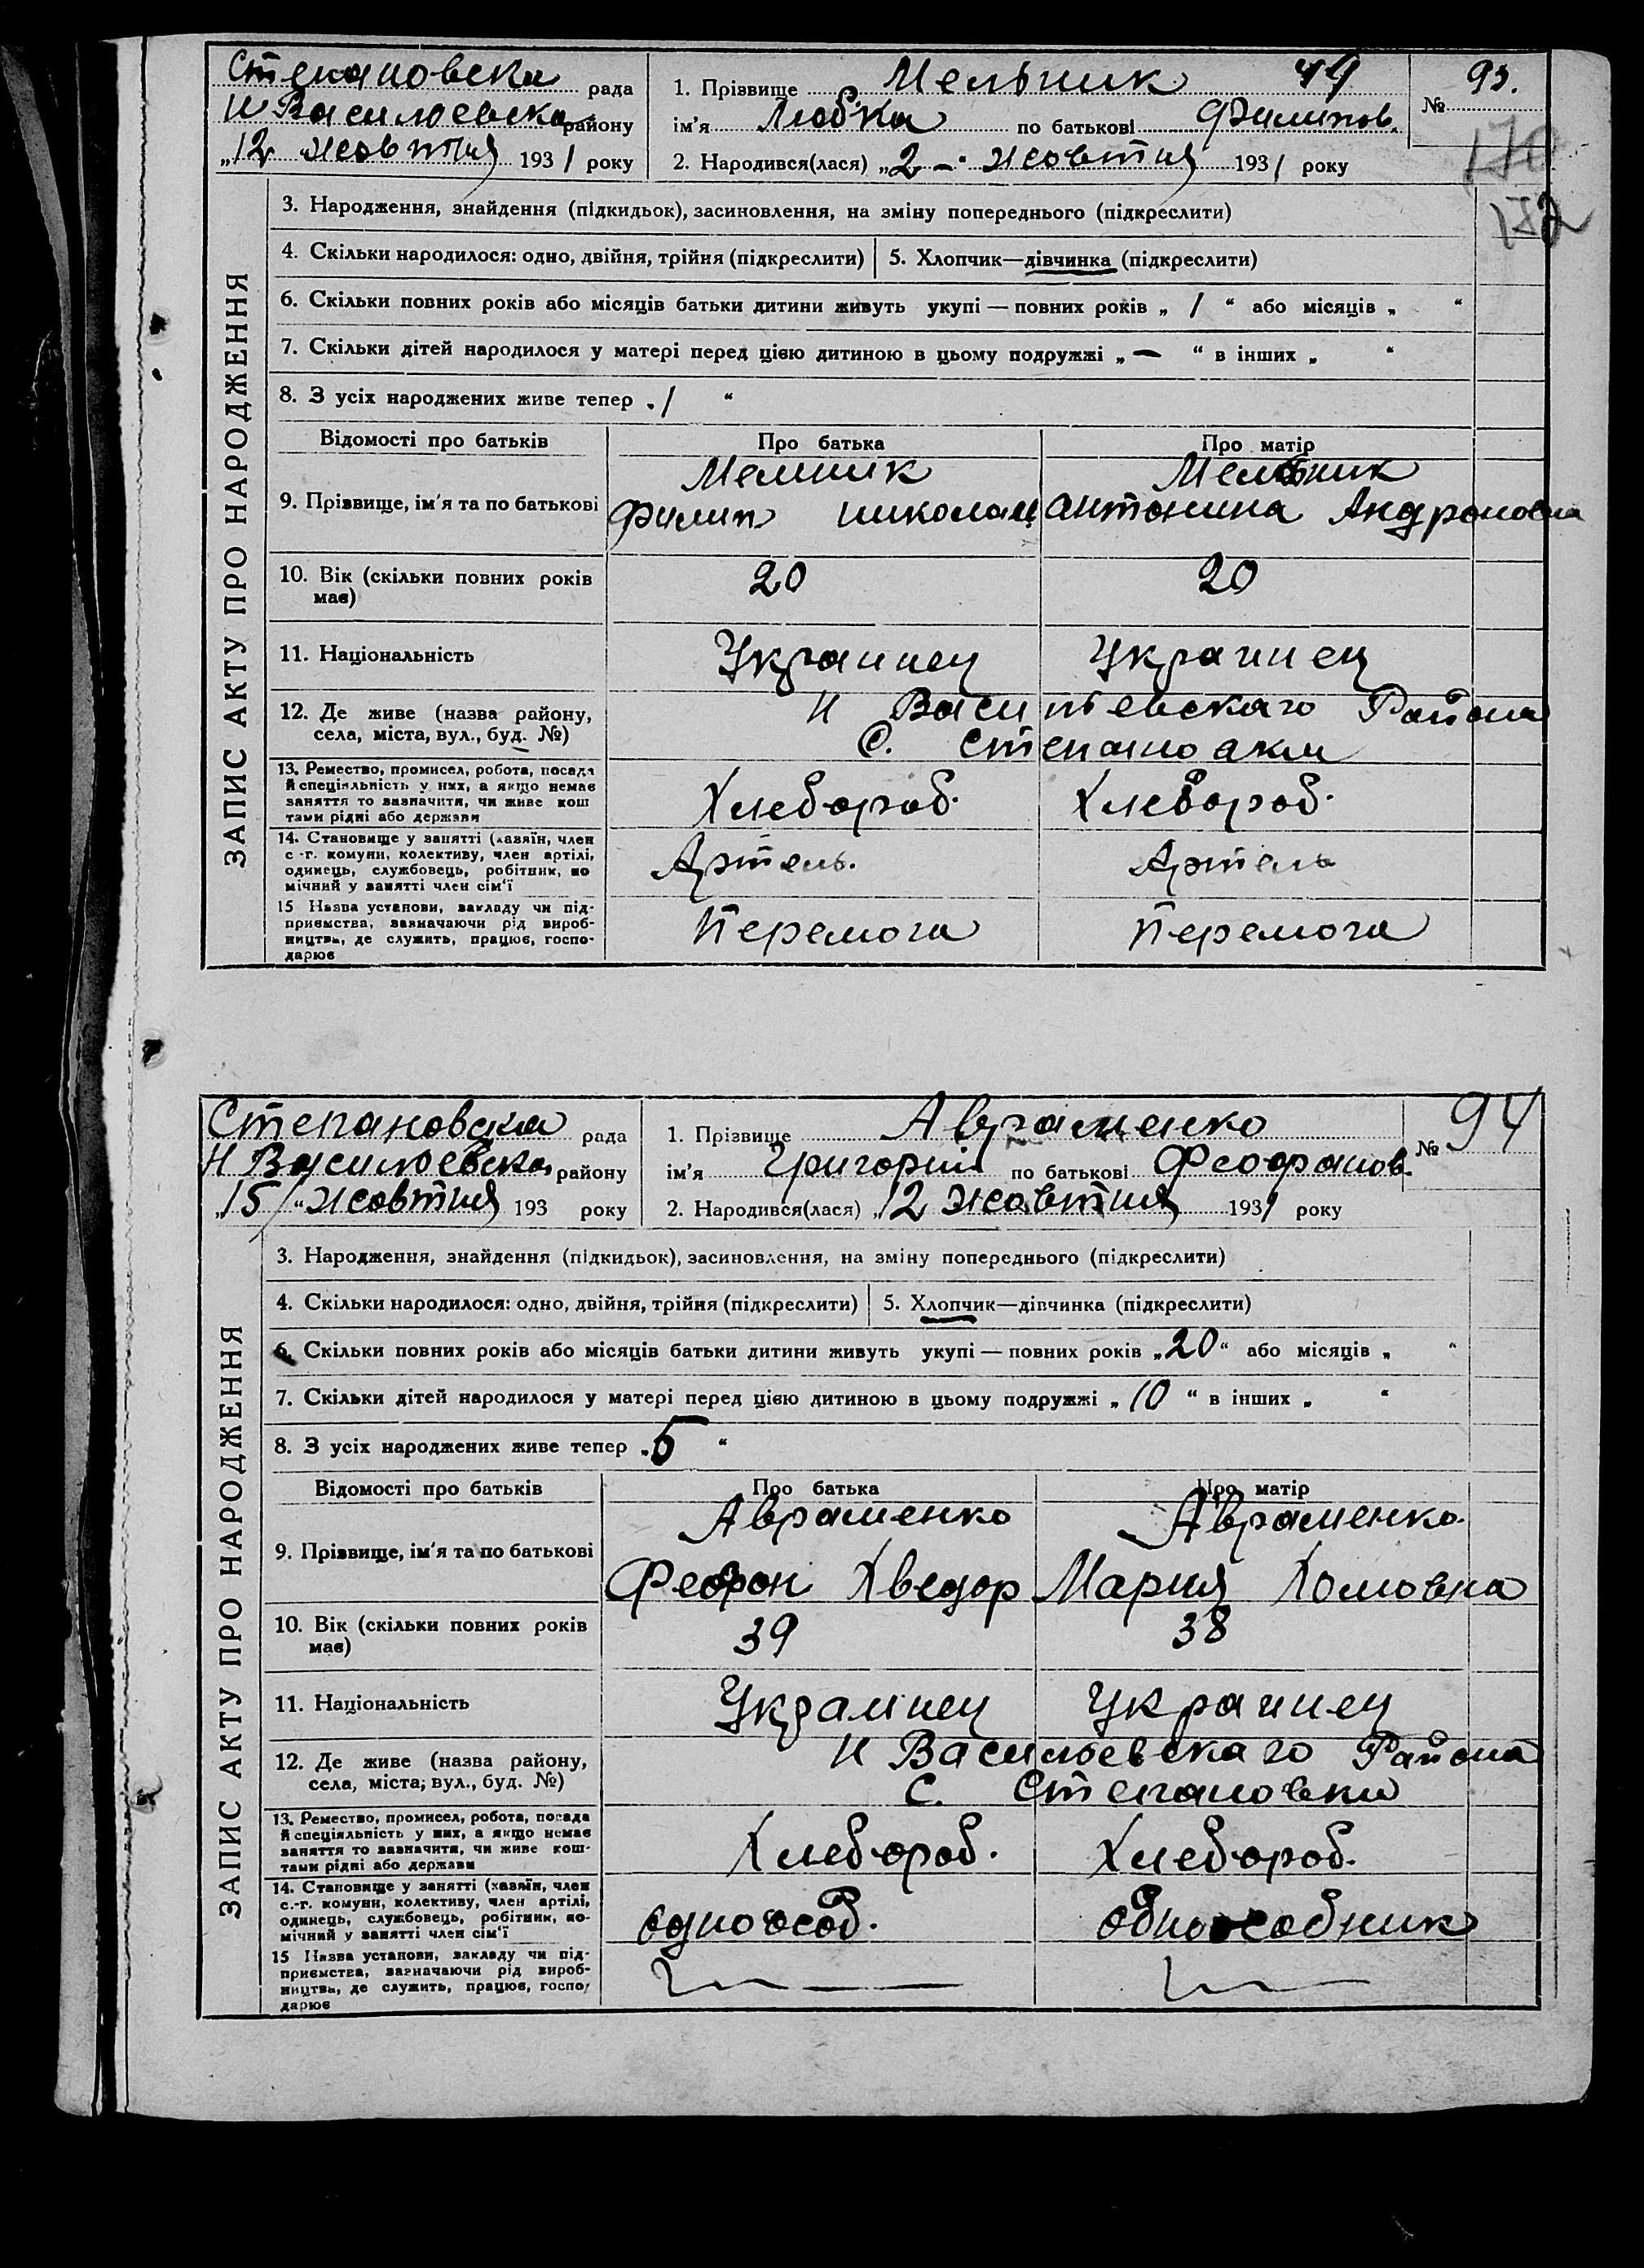 Степановска рада
Н Василювска району
„12 жовтня 1931 року
1. Прізвище Мельник 49
ім'я Любка по батькові Филипов.
2. Народився(лася) „2 – жовтня 1931 року
№ 93.
170
172
ЗАПИС АКТУ ПРО НАРОДЖЕННЯ
3. Народження, знайдення (підкидьок), засиновлення, на зміну попереднього (підкреслити)
4. Скільки народилося: одно, двійня, трійня (підкреслити) 5. Хлопчик—дівчинка (підкреслити)
6. Скільки повних років або місяців батьки дитини живуть укупі — повних років „ 1 “ або місяців „ “
7. Скільки дітей народилося у матері перед цією дитиною в цьому подружжі „ — “ в інших „ “
8. З усіх народжених живе тепер „1 “
Відомості про батьків Про батька Про матір
9. Прізвище, ім'я та по батькові
Мелник Мельник
Филип николай антонина Андроновна
10. Вік (скільки повних років має) 20 20
11. Національність Украинец Украинец
12. Де живе (назва району, села, міста, вул., буд. №)
Н Васильевскаго Района
С. Степановки
13. Ремество, промисел, робота, посада
й спеціяльність у них, а якщо немає
заняття то зазначити, чи живе кош
тами рідні або держави
Хлебороб. Хлебороб.
14. Становище у занятті (хазяїн, член
с.-г. комуни, колективу, член артілі,
одинець, службовець, робітник, по
мічний у занятті член сім'ї
Артель. Артель
15 Назва установи, закладу чи під-
приємства, зазначаючи рід вироб-
ництва, де служить, працює, госпо-
дарює
Перемога Перемога
Степановска рада
Н Василювска району
„15/“ жовтня 193 року
1. Прізвище Авраменко
ім'я Григорий по батькові Феофанов.
2. Народився(лася) „12 жовтня 1931 року
№ 94
ЗАПИС АКТУ ПРО НАРОДЖЕННЯ
3. Народження, знайдення (підкидьок), засиновлення, на зміну попереднього (підкреслити)
4. Скільки народилося: одно, двійня, трійня (підкреслити) 5. Хлопчик—дівчинка (підкреслити)
6. Скільки повних років або місяців батьки дитини живуть укупі — повних років „20“ або місяців „ “
7. Скільки дітей народилося у матері перед цією дитиною в цьому подружжі „10 “ в інших „ “
8. З усіх народжених живе тепер „5 “
Відомості про батьків Про батька Про матір
9. Прізвище, ім'я та по батькові
Авраменко Авраменко
Феофон Хведор Мария Хомовна
10. Вік (скільки повних років має) 39 38
11. Національність Украинец Украинец
12. Де живе (назва району, села, міста; вул., буд. №)
Н Васильевскаго Района
С. Степановки
13. Ремество, промисел, робота, посада
й спеціяльність у них, а якщо немає
заняття то зазначити, чи живе кош-
тами рідні або держави
Хлебороб. Хлебороб.
14. Становище у занятті (хазяїн, член
с.-г. комуни, колективу, член артілі,
одинець, службовець, робітник, по-
мічний у занятті член сім'ї
одноособ. одноособник
15 Назва установи, закладу чи під-
приємства, зазначаючи рід вироб-
ництва, де служить, працює, госпо-
дарює